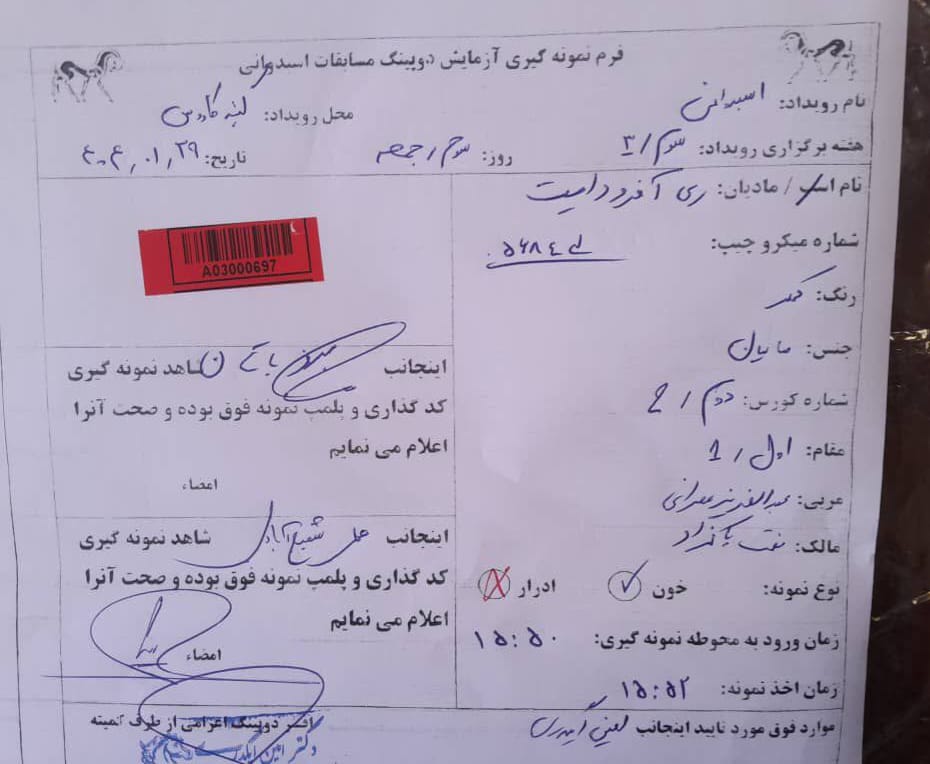 فرم نمونه گیری آزمایش دوپینگ مسابقات اسبدوانی
نام رویداد: اسبدوانی محل رویداد: گنبد کاووس
هفته برگزاری رویداد: سوم / ۳ روز: سوم / جمعه تاریخ: ۴۰۴,۰۱,۲۹
نام اسب / مادیان: ری آفرودایت
شماره میکرو چیپ:
رنگ: کهر
جنس: مادیان
شماره کورس: دوم / ۲
مقام: اول / 1
مربی:
مالک:
نوع نمونه: خون ادرار
زمان ورود به محوطه نمونه گیری: ۱۵:۵۰
زمان اخذ نمونه: ۱۵:۵۲
موارد فوق مورد تایید اینجانب
A03000697
اینجانب شاهد نمونه گیری
کد گذاری و پلمپ نمونه فوق بوده و صحت آنرا
اعلام می نمایم
امضاء
اینجانب علی شفیع آبادی شاهد نمونه گیری
کد گذاری و پلمپ نمونه فوق بوده و صحت آنرا
اعلام می نمایم
امضاء
افسر دوپینگ اعزامی از طرف کمیته
دکتر